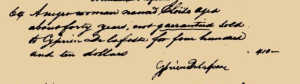 64 A negro woman named Cloile aged
about forty years, not guaranteed sold
to Cyprien Delafosse for four hundred
and ten dollars 410—
Cyprien Delafosse